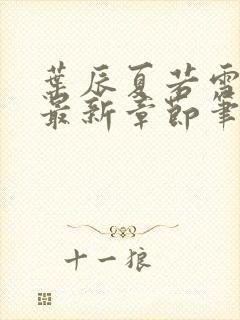 葉辰夏若雪
最新章節筆
十一狼